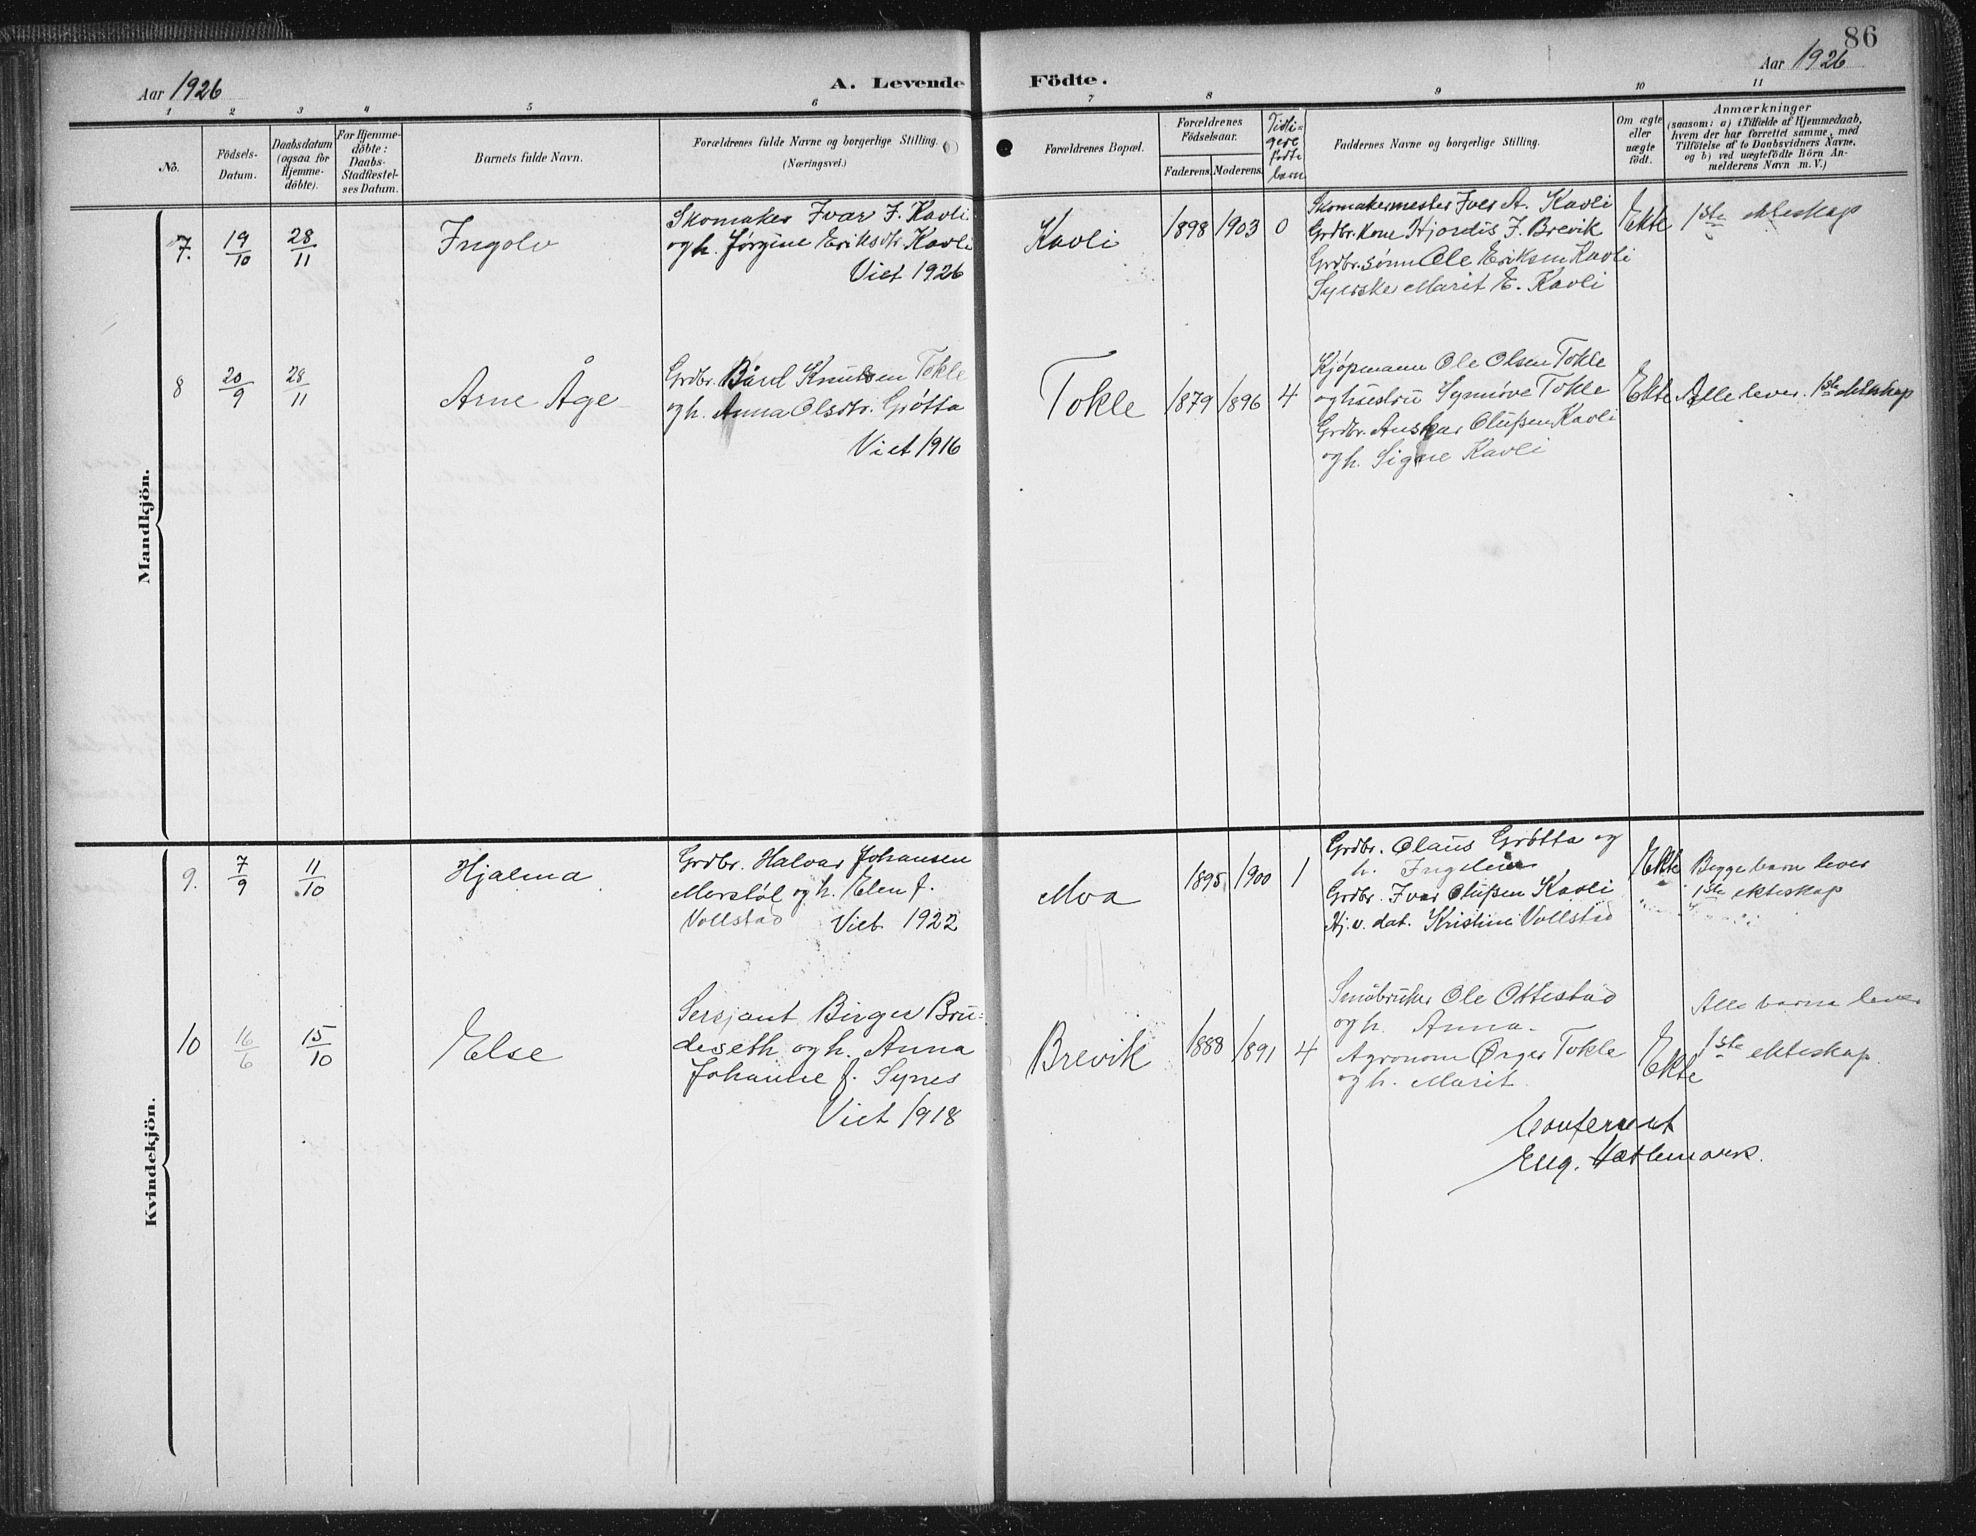 86
Aar 1926
A. Levende Födte.
Aar 1926
1 2 3 4 5 6 7 8 9 10 11
No.
Födsels-Datum.
Daabsdatum (ogsaa for Hjemme-döbte).
For Hjemme-döbte: Daabs-Stadfæstel-ses Datum.
Barnets fulde Navn.
Forældrenes fulde Navne og borgerlige Stilling.
(Næringsvei.)
Forældrenes Bopæl.
Forældrenes Födselsaar.
Faderens. Moderens.
Tidli-gere fødte barn
Faddernes Navne og borgerlige Stilling.
Om ægte eller uægte födt.
Anmærkninger
(saasom: a) i Tilfælde af Hjemmedaab,
hvem der har forrettet samme, med
Tilföielse af to Daabsvidners Navne,
og b) ved uægtefödte Börn An-
melderens Navn m. V.)
Mandkjön.
7. 19/10 28/11 Ingolv
Skomaker Ivar J. Kavli
og h. Jørgine Eriksdtr. Kavli
Viet 1926
Kavli 1898 1903 0
Skomakermester Iver A. Kavli
Grdbr. kone Hjordis J. Brevik
Grdbr. sønn Ole Eriksen Kavli
Syerske Marit E. Kavli
Ekte 1ste ekteskap
8 20/9 28/11 Arne Åge
Grdbr. Bård Knutsen Tokle
og h. Anna Olsdtr. Grøtta
Viet 1916
Tokle 1879 1896 4
Kjøpmann Ole Olsen Tokle
og hustru Synnøve Tokle
Grdbr. Anskar Olufsen Kavli
og h. Signe Kavli
Ekte Alle lever. 1ste ekteskap
Kvindekjön.
9. 7/9 11/10 Hjalma
Grdbr. Halvar Johansen
Morstøl og h. Elen f.
Vollstad Viet 1922
Moa 1895 1900 1
Grdbr. Olaus Grøtta og
h. Ingeleiv
Grdbr. Ivar Olufsen Kavli
Hj. v. dat. Kristine Vollstad
Ekte Begge barn lever
1ste ekteskap
10 16/6 15/10 Else
Sersjant Birger Bru-
deseth og h. Anna
Johanne f. Synes
Viet 1918
Brevik 1888 1891 4
Småbruker Ole Ottestad
og h. Anna.
Agronom Ørger Tokle
og h. Marit.
Ekte Alle barna lever
1ste ekteskap.
Confererat
Elig. Hatlemark.